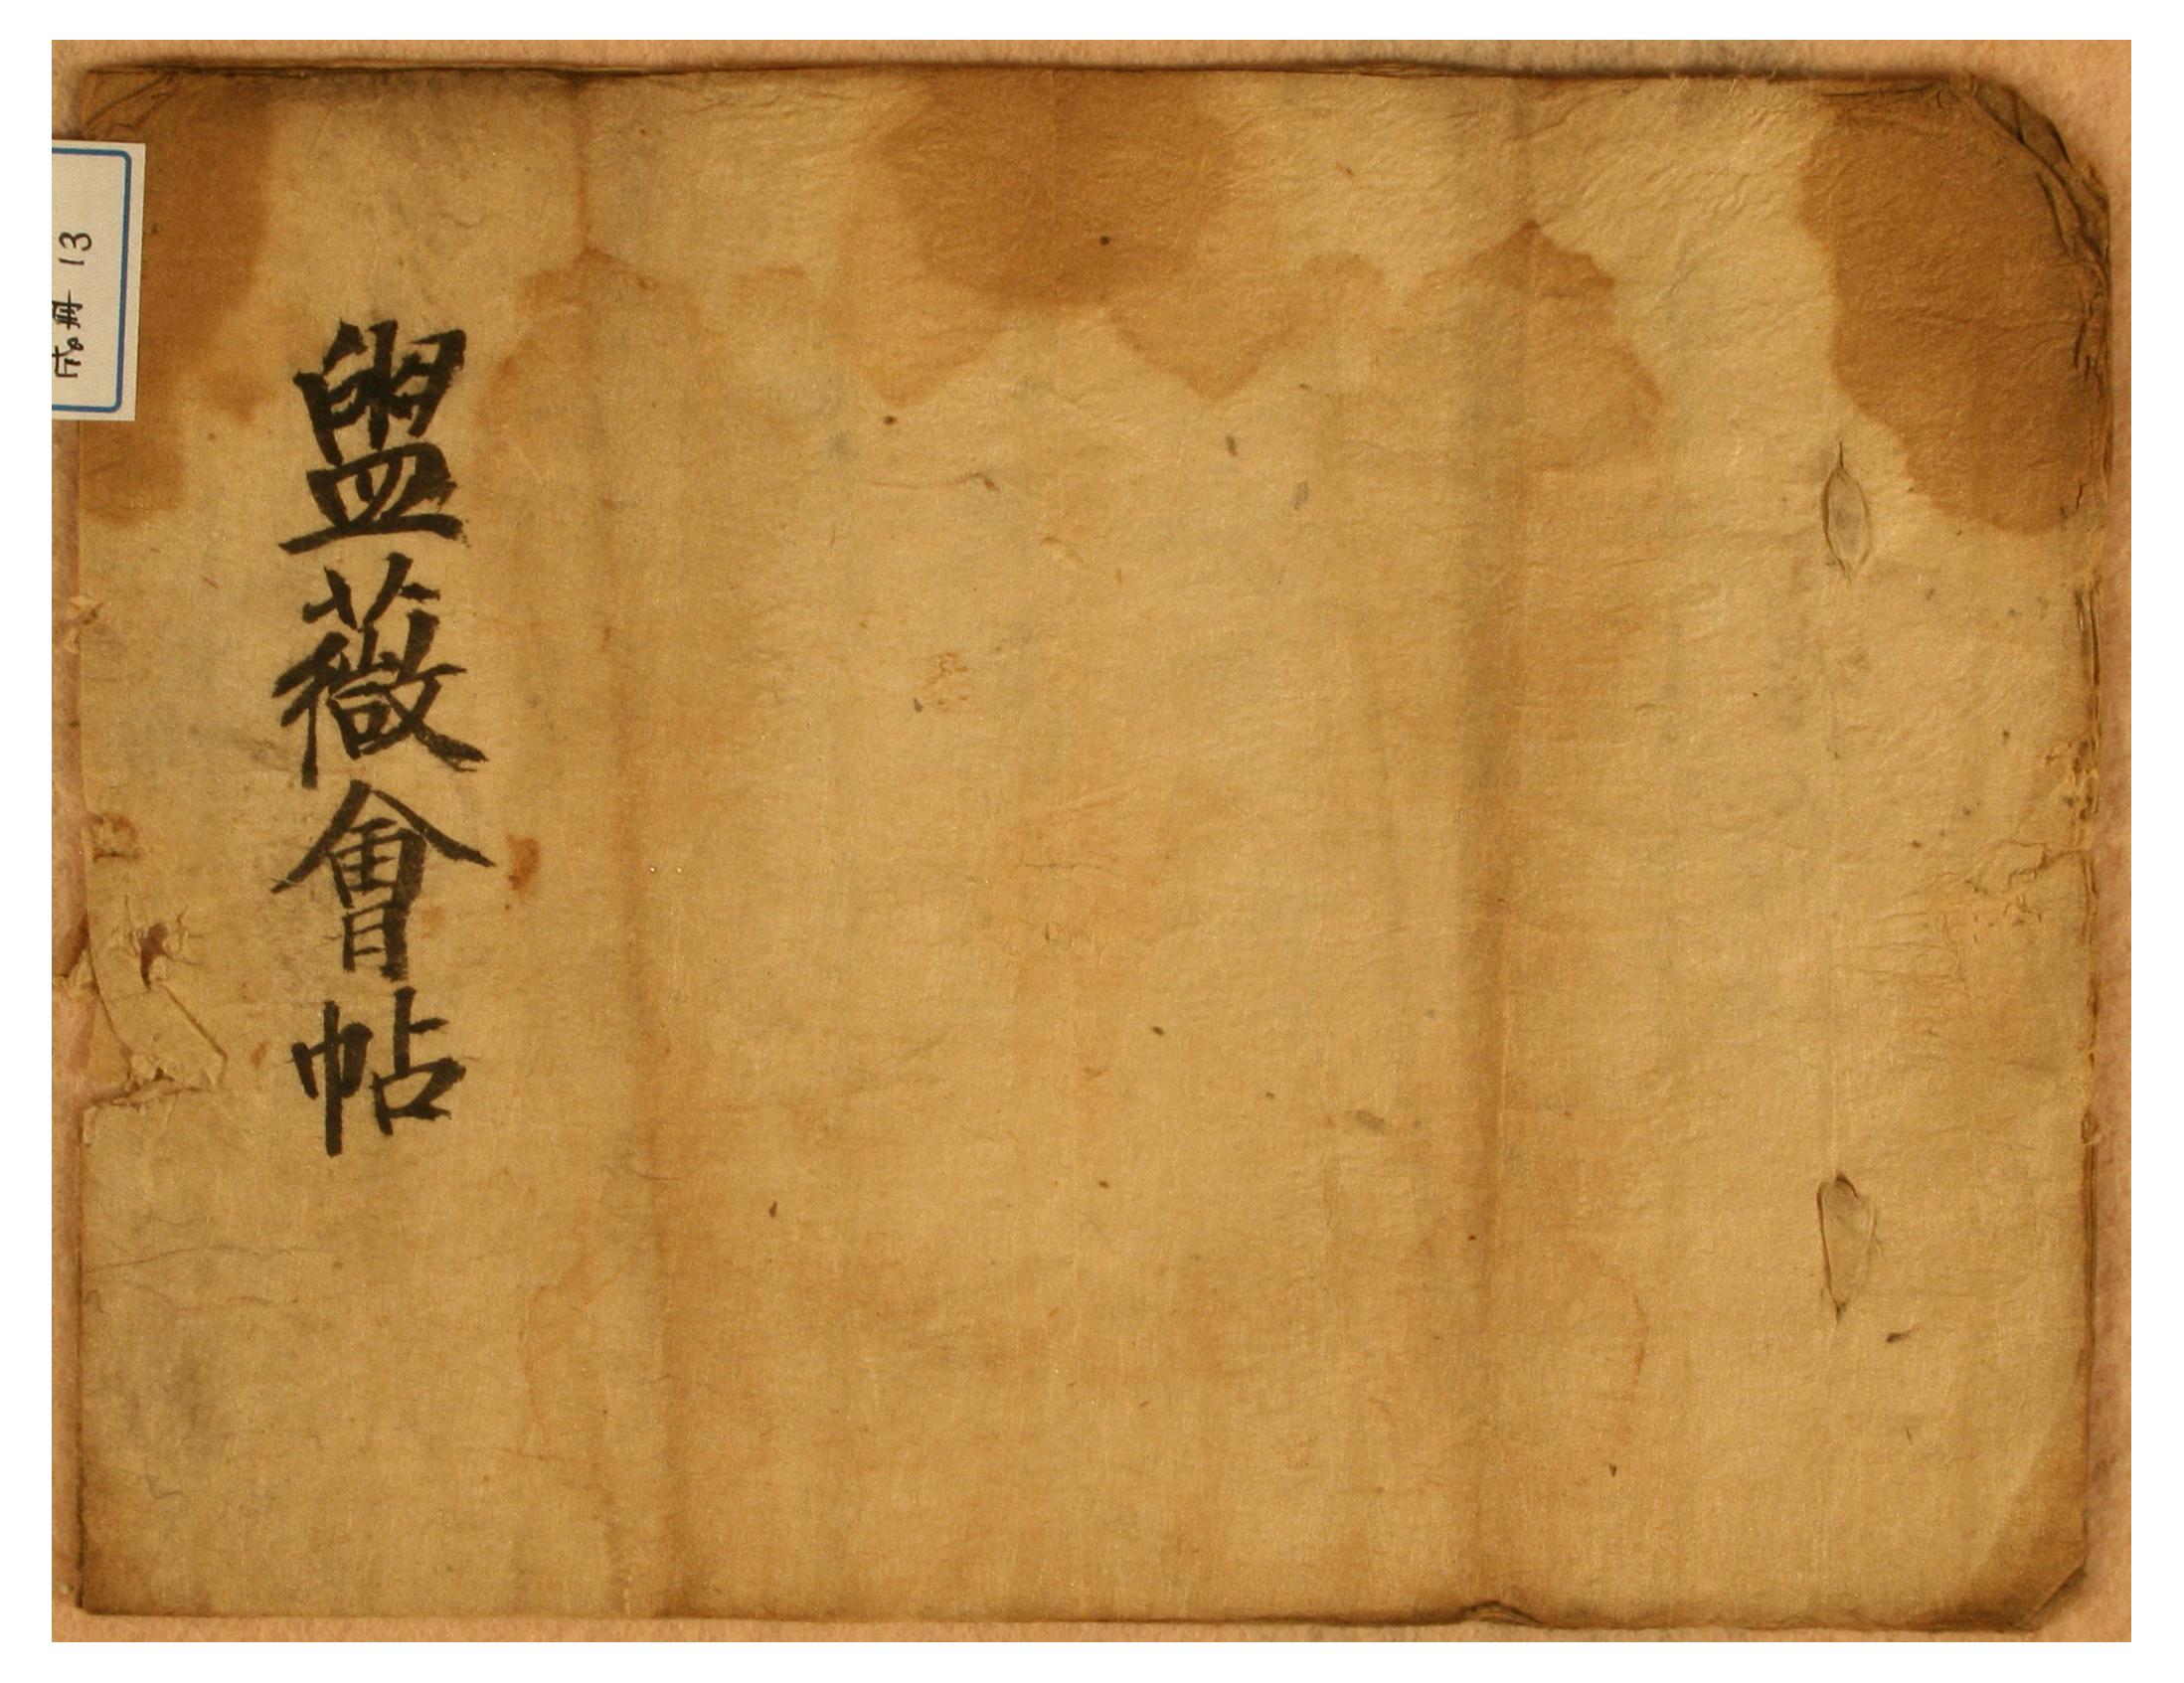 盥薇會帖
13